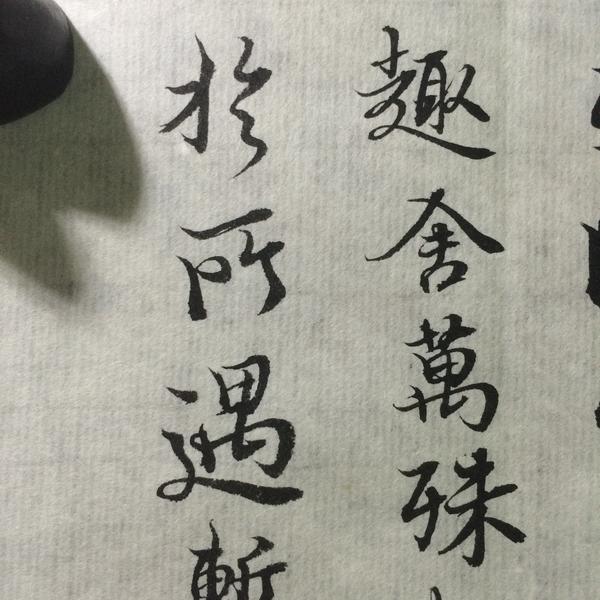 趣舍萬殊
於所遇暫